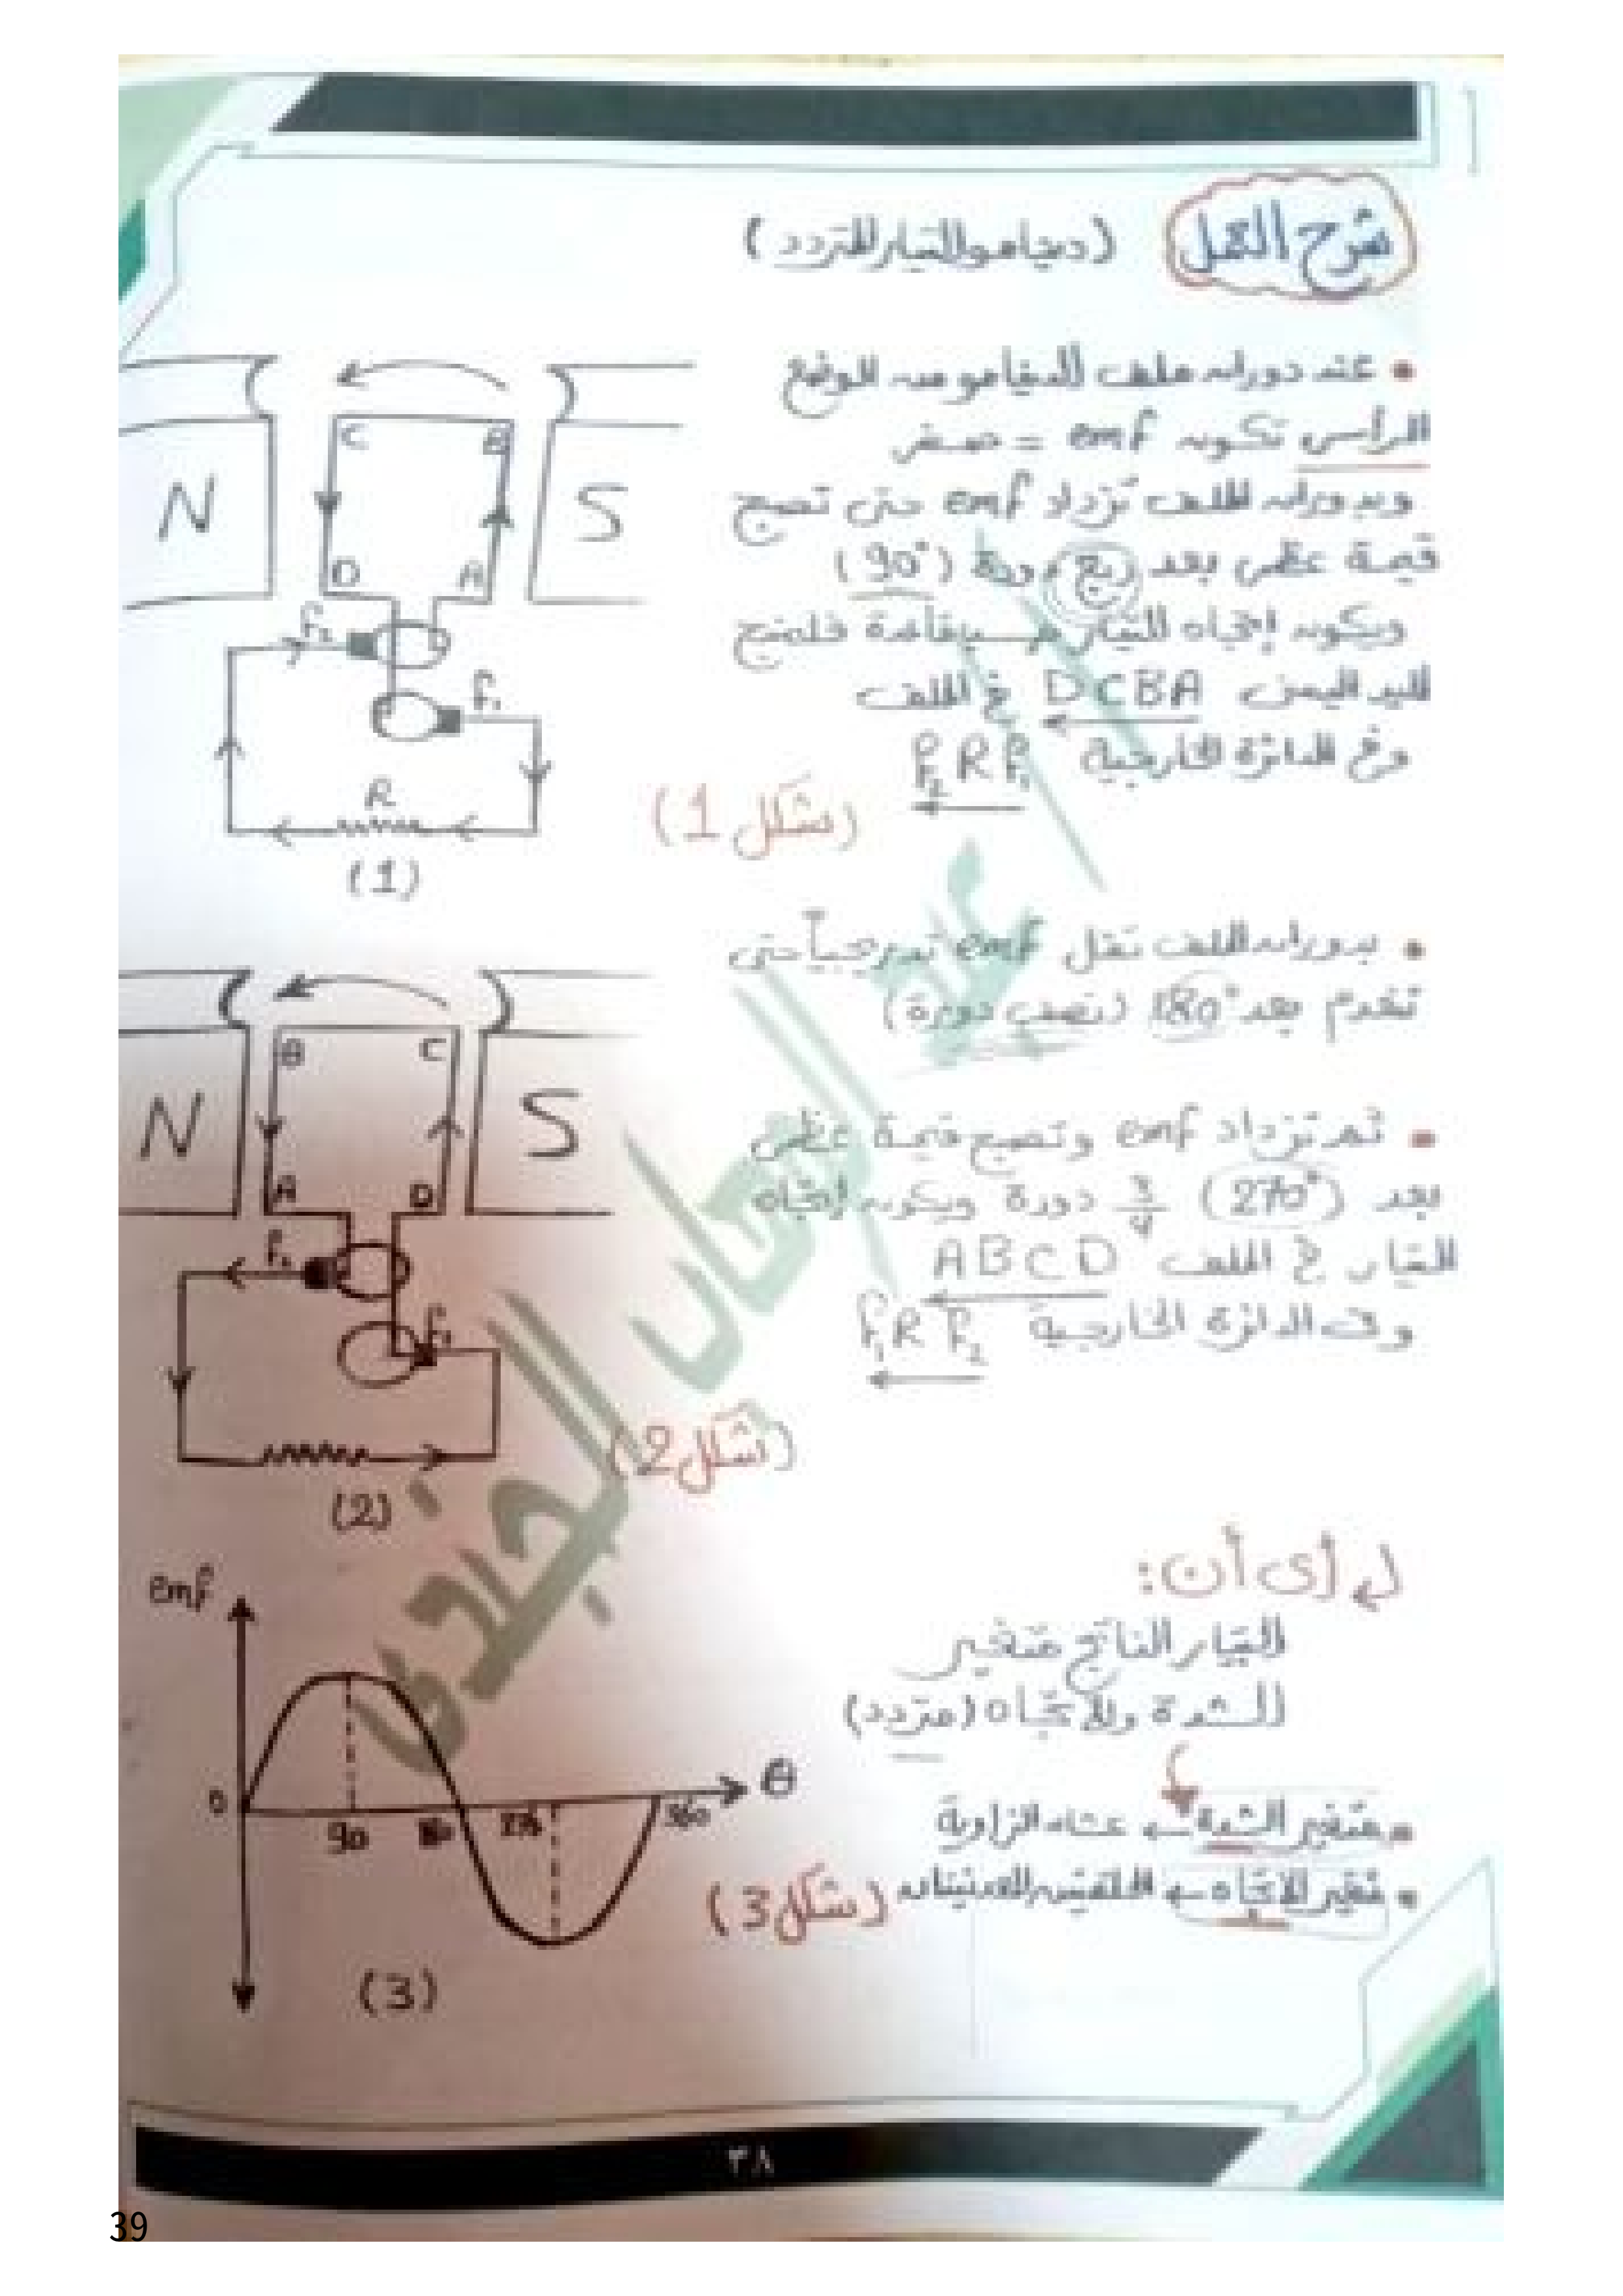 شرح العمل (دينامو التيار المتردد)
• عند دوران ملف الدينامو من الوضع
الرأسى تكون emf = صفر
وبدوران الملف تزداد emf حتى تصبح
قيمة عظمى بعد ربع دورة (90°)
ويكون إتجاه التيار حسب قاعدة فلمنج
لليد اليمنى DCBA فى الملف
وفى الدائرة الخارجية F₂ R F₁
(شكل 1)
C B
N S
D A
F₂
F₁
R
(1)
• بدوران الملف تقل emf تدريجياً حتى
تنعدم بعد 180° (نصف دورة)
• ثم تزداد emf وتصبح قيمة عظمى
بعد (270°) ¾ دورة ويكون إتجاه
التيار فى الملف ABCD
وفى الدائرة الخارجية F₁ R F₂
(شكل 2)
B C
N S
A D
F₂
F₁
(2)
أى أن:
التيار الناتج متغير
الشدة والاتجاه (متردد)
• متغير الشدة ← عشان الزاوية
• متغير الاتجاه ← الحلقتين المعدنيتان (شكل 3)
emf
θ
0 90 180 270 360
(3)
عبد الرحمن الجندى
٣٨
39